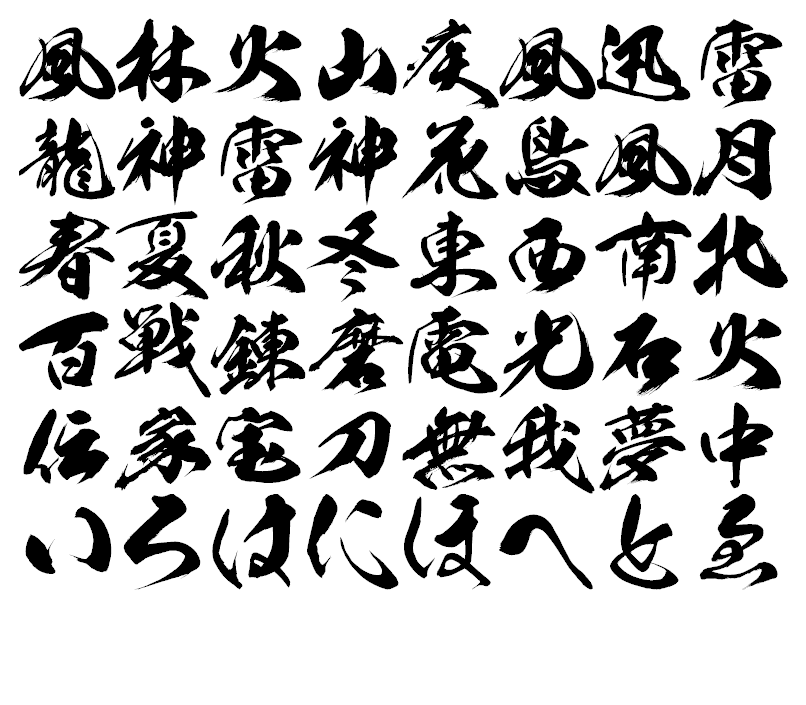 風林火山疾風迅雷
龍神雷神花鳥風月
春夏秋冬東西南北
百戦錬磨電光石火
伝家宝刀無我夢中
いろはにほへとゑ